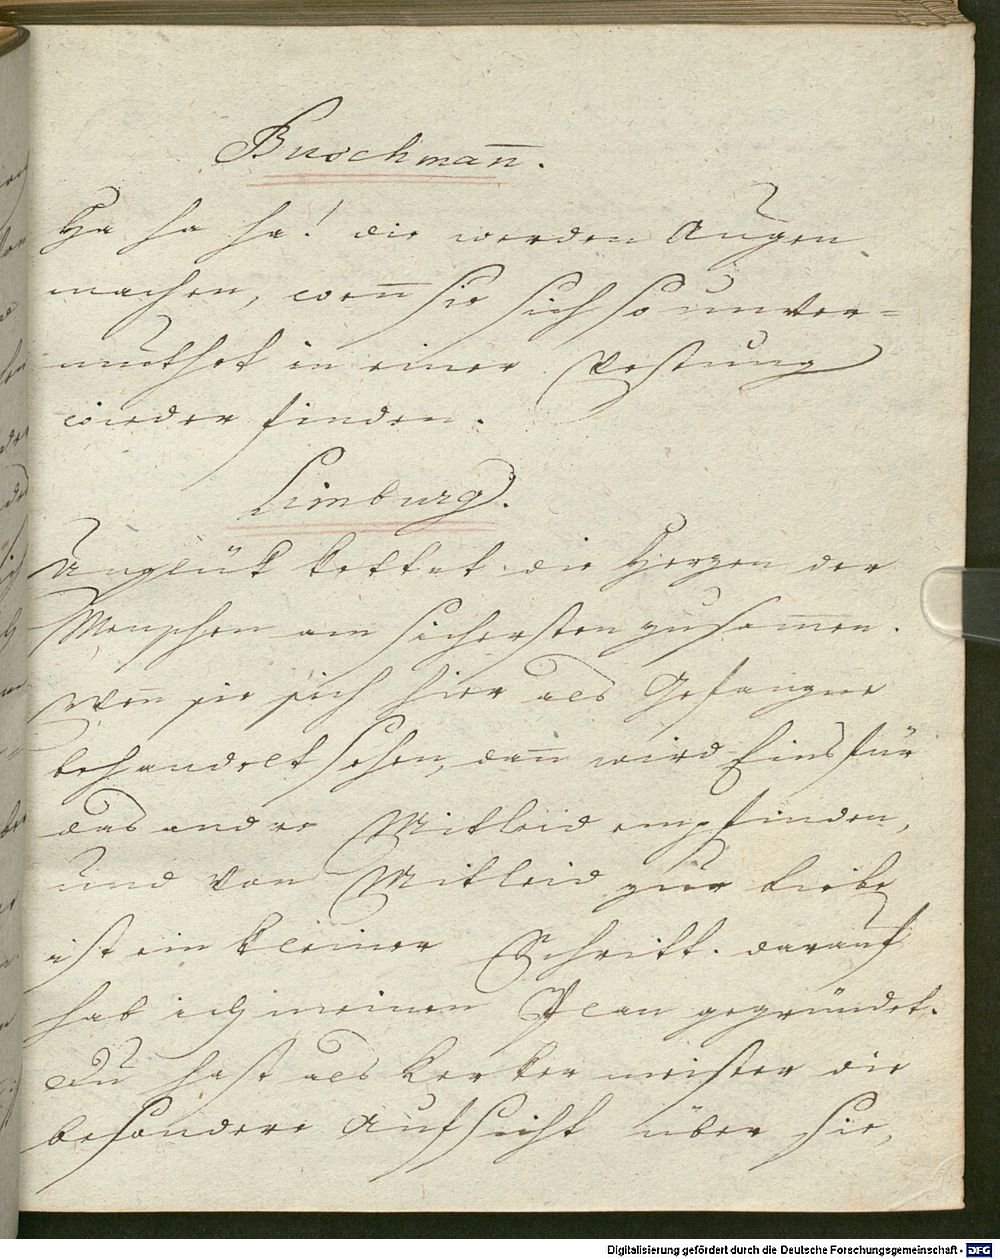 Buschman̄.
Ha ha ha! die werden Augen
machen, wen̄ sie sich so unver=
muthet in einer Vestung
wieder finden.
Limburg.
Unglük kettet die Herzen der
Menschen am sichersten zusam̄en.
Wen̄ sie sich hier als Gefangne
behandelt sehen, dan̄ wird Eins für
das andre Mitleid empfinden,
und von Mitleid zur Liebe
ist ein kleiner Schritt. darauf
hab ich meinen Plan gegründet.
Du hast als Kerkermeister die
besondere Aufsicht über sie,
Digitalisierung gefördert durch die Deutsche Forschungsgemeinschaft - DFG